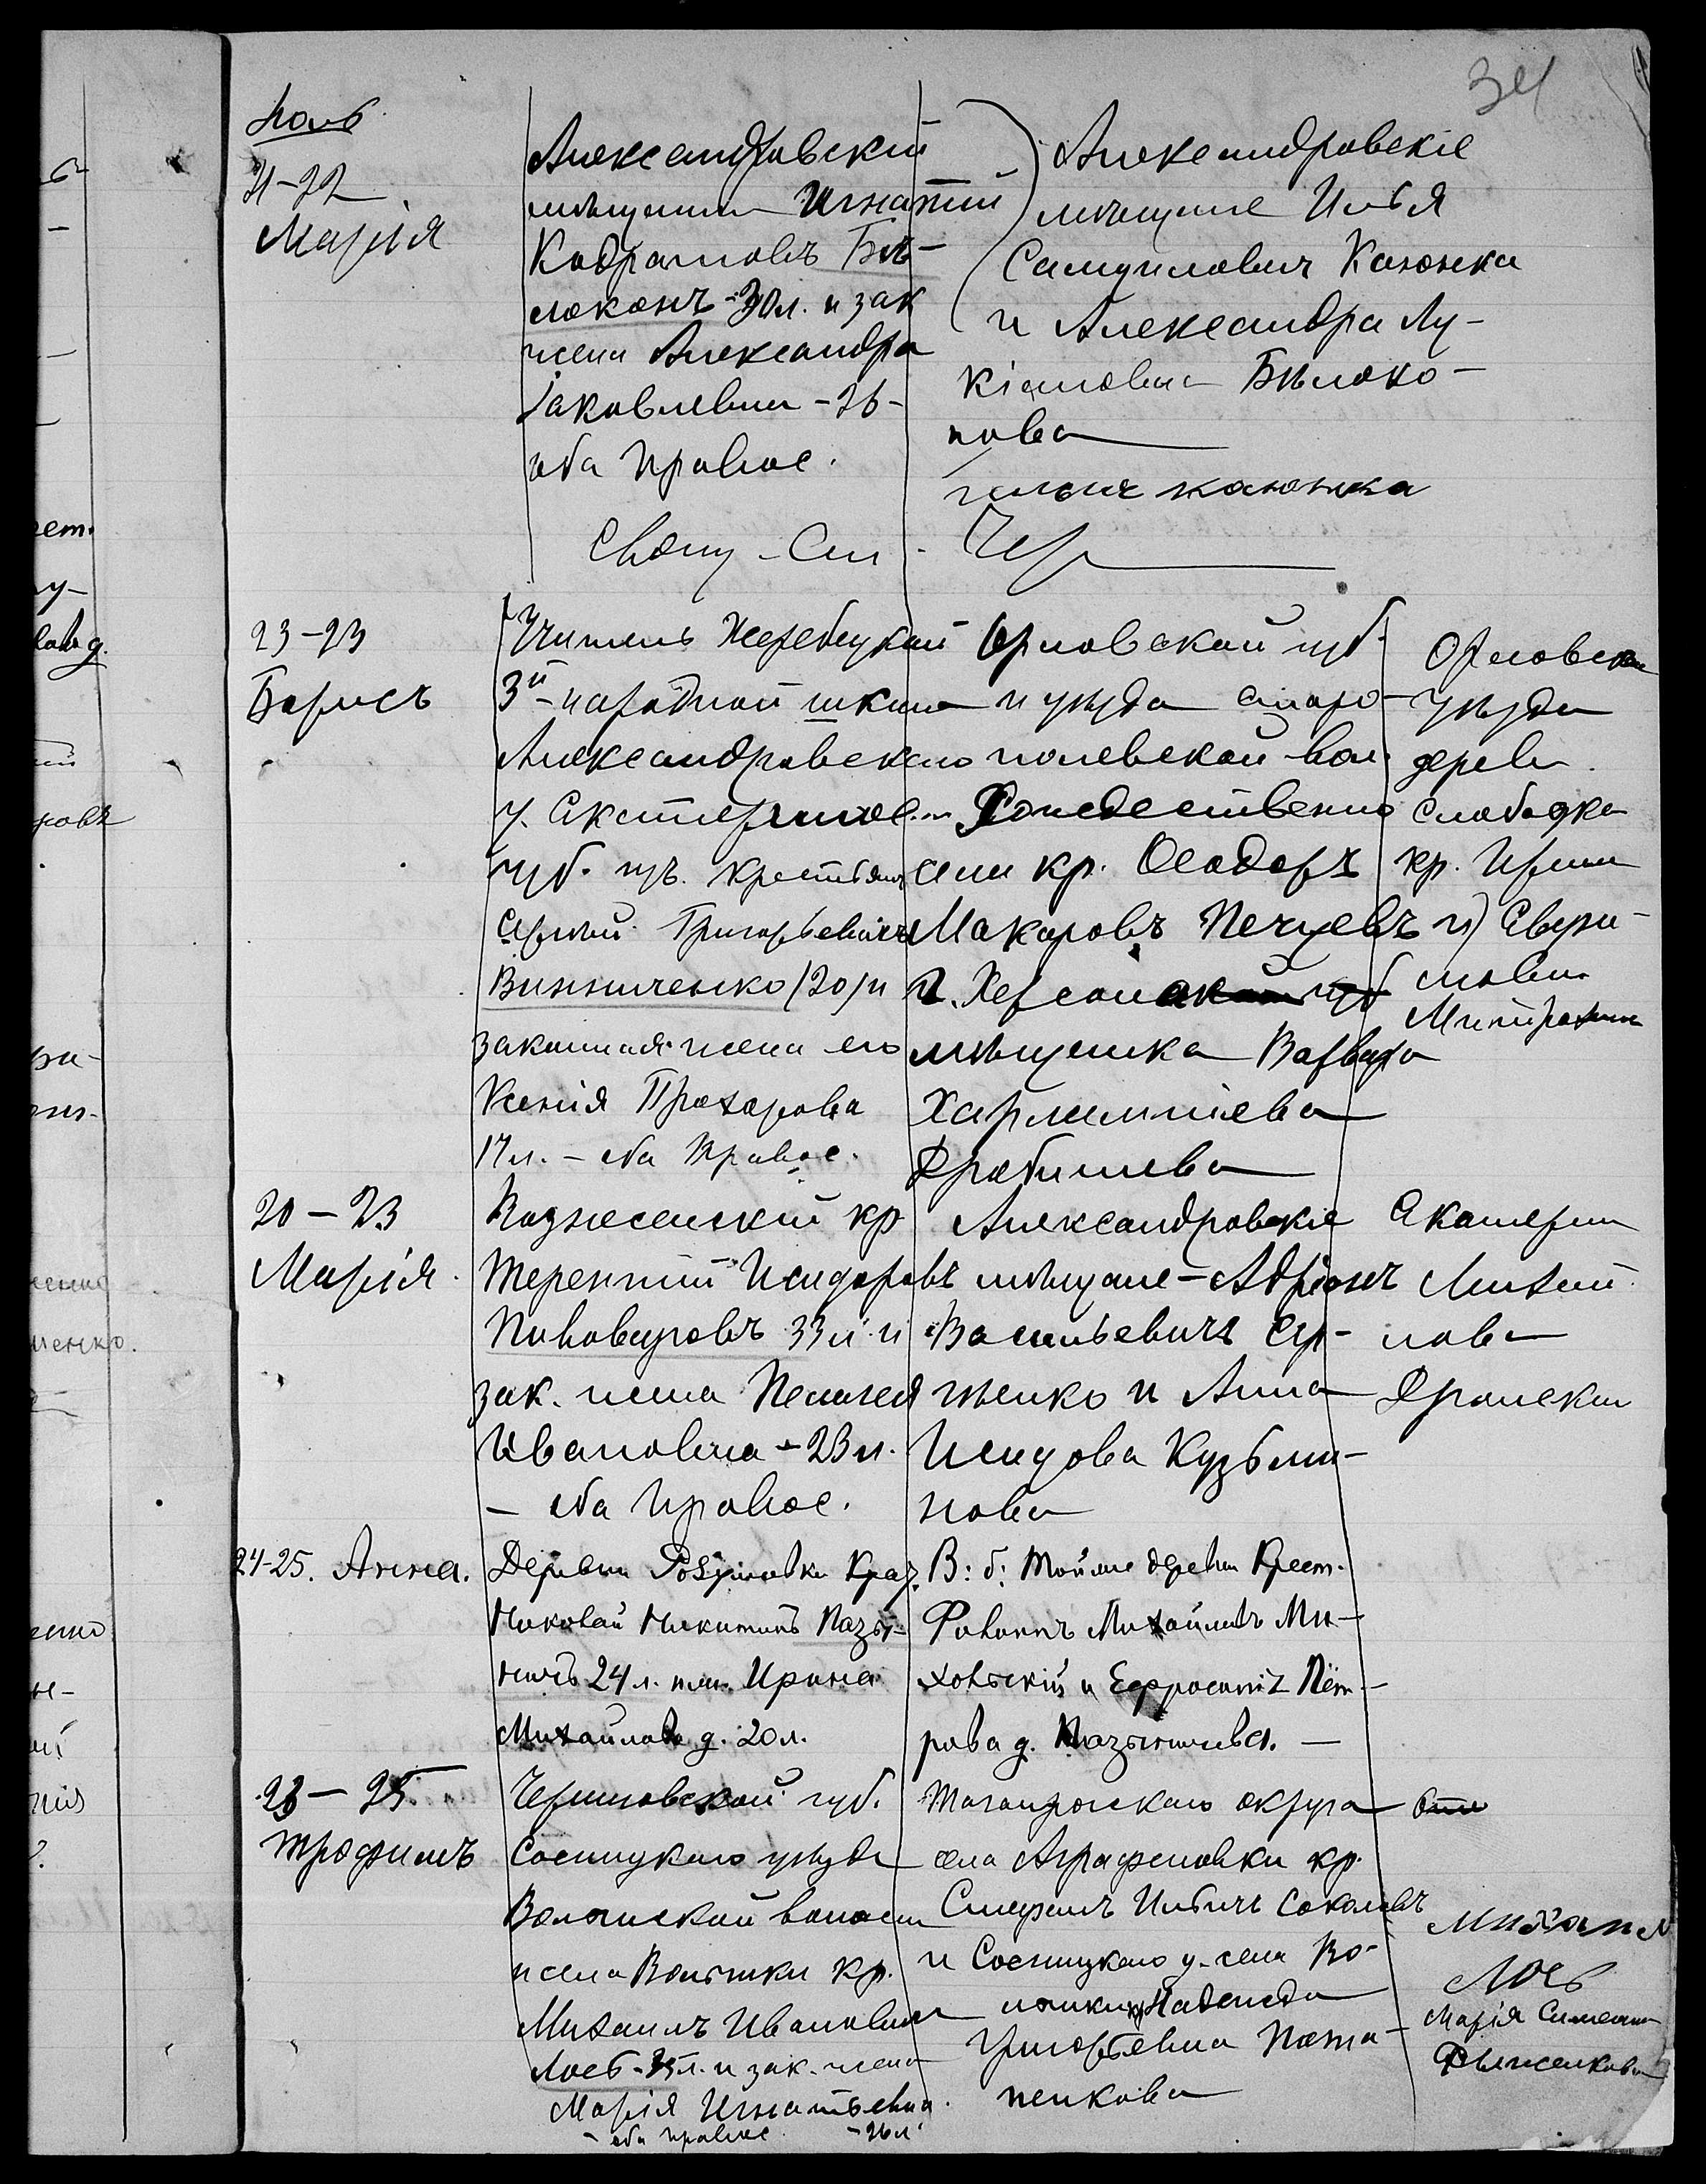 34
Іюль
21-22
Марія
Александровскій
мѣщанинъ Игнатій
Кодратовъ Бѣ-
локонь - 30 л. и зак
жена Александра
Іаковлевна - 26 -
оба правос.
Александровскіе
мѣщане Илья
Самуиловичъ Канюка
и Александра Лу-
кіановна Бѣлоко-
нова
Канюка
23-23
Борисъ
Учитель Жеребецкой
3й народной школы
Александровскаго
у. Екатеринос.
губ. изъ крестьянъ
Сергий Григорьевичъ
Винниченко (20) и
законная жена его
Ксенія Прохорова
17 л. - оба правос.
Орловской губ.
и уѣзда старо-
полевской вол.
Рождественно
села кр. Ѳеодоръ
Макаровъ Печуевъ и)
г. Херсона
мѣщанка Варвара
Харлампіева
Дробишева
Орловской
уѣзда
дерев.
Слободка
кр. Ирина
Авери-
Митрохина
20-23
Марія.
Вознесенскій кр
Терентій Исидоровъ
Пивоваровъ 33 л. и
зак. жена Пелагея
Ивановна - 23 л.
- оба правос.
Александровскіе
мѣщане - Адріанъ
Васильевичъ Сер-
гіенко и Анна
Исидова Кузьми-
нова
Екатерина
Михай-
лова
24-25. Анна.
Деревни
Николай Никитинъ Назы-
ничъ 24 л. и жен. Ирина
Михайлова д. 20 л.
В: б: Той же деревни Крест.
Михайловъ Ми-
ховскій и Ефросинія Пет-
рова д. Назыничева. -
23-25.
Трофимъ
Черниговской губ.
Сосницкаго уѣзда
Волынской волости
и села Волынки кр.
Михаилъ Ивановичъ
Лось - 35 л. и зак. жена
Марія Игнатьевна
- оба правос. - 26 л
Таганрогскаго округа
села Аграфеновки кр.
Стефанъ Ильичъ Соколовъ
и Сосницкаго у. села Во-
лынки кр Надежда
Григорьевна Пота-
пенкова
Михаил
Лось
Марія Симеонова
Рыженкова